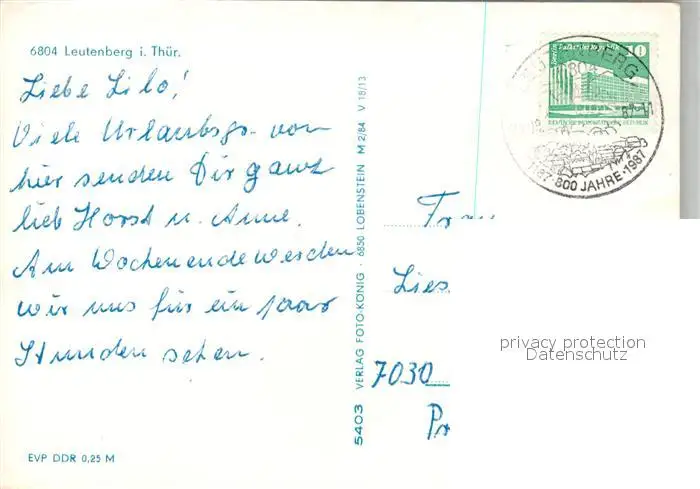 6804 Leutenberg i. Thür.
Liebe Lilo!
Viele Urlaubsgr. von
hier senden Dir ganz
lieb Horst u. Anne.
Am Wochenende werden
wir uns für ein paar
Stunden sehen.
EVP DDR 0,25 M
5403 VERLAG FOTO-KÖNIG · 6850 LOBENSTEIN M 2/84 V 18/13
Berlin-Palast der Republik 10
LEUTENBERG
6804
1187-800 JAHRE-1987
Frau
Lies
7030
privacy protection
Datenschutz